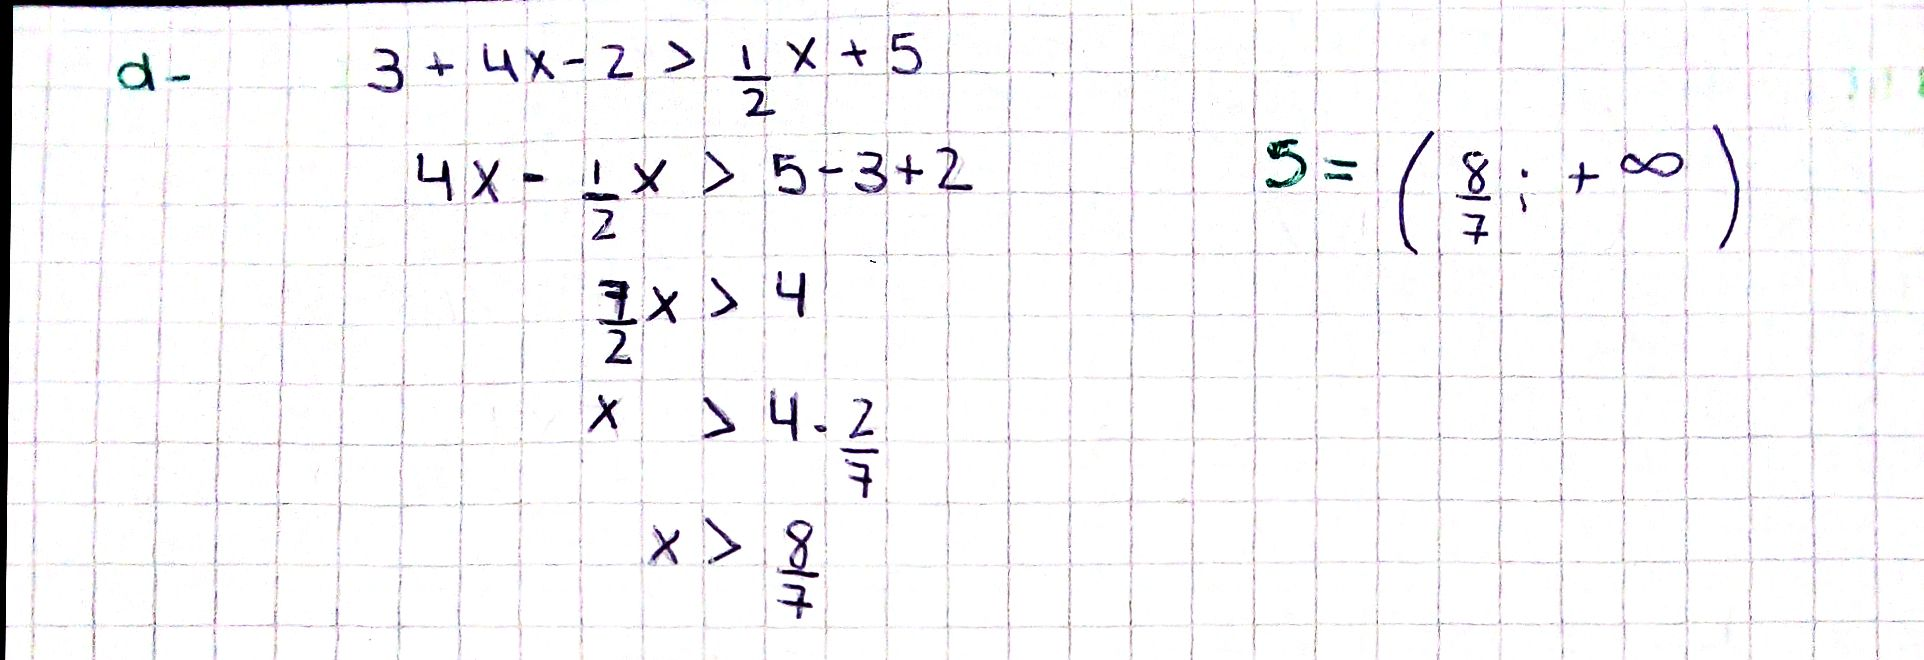 d- 3 + 4x - 2 > 1/2 x + 5
4x - 1/2 x > 5 - 3 + 2
5 = ( 8/7 ; + ∞ )
7/2 x > 4
x > 4 . 2/7
x > 8/7